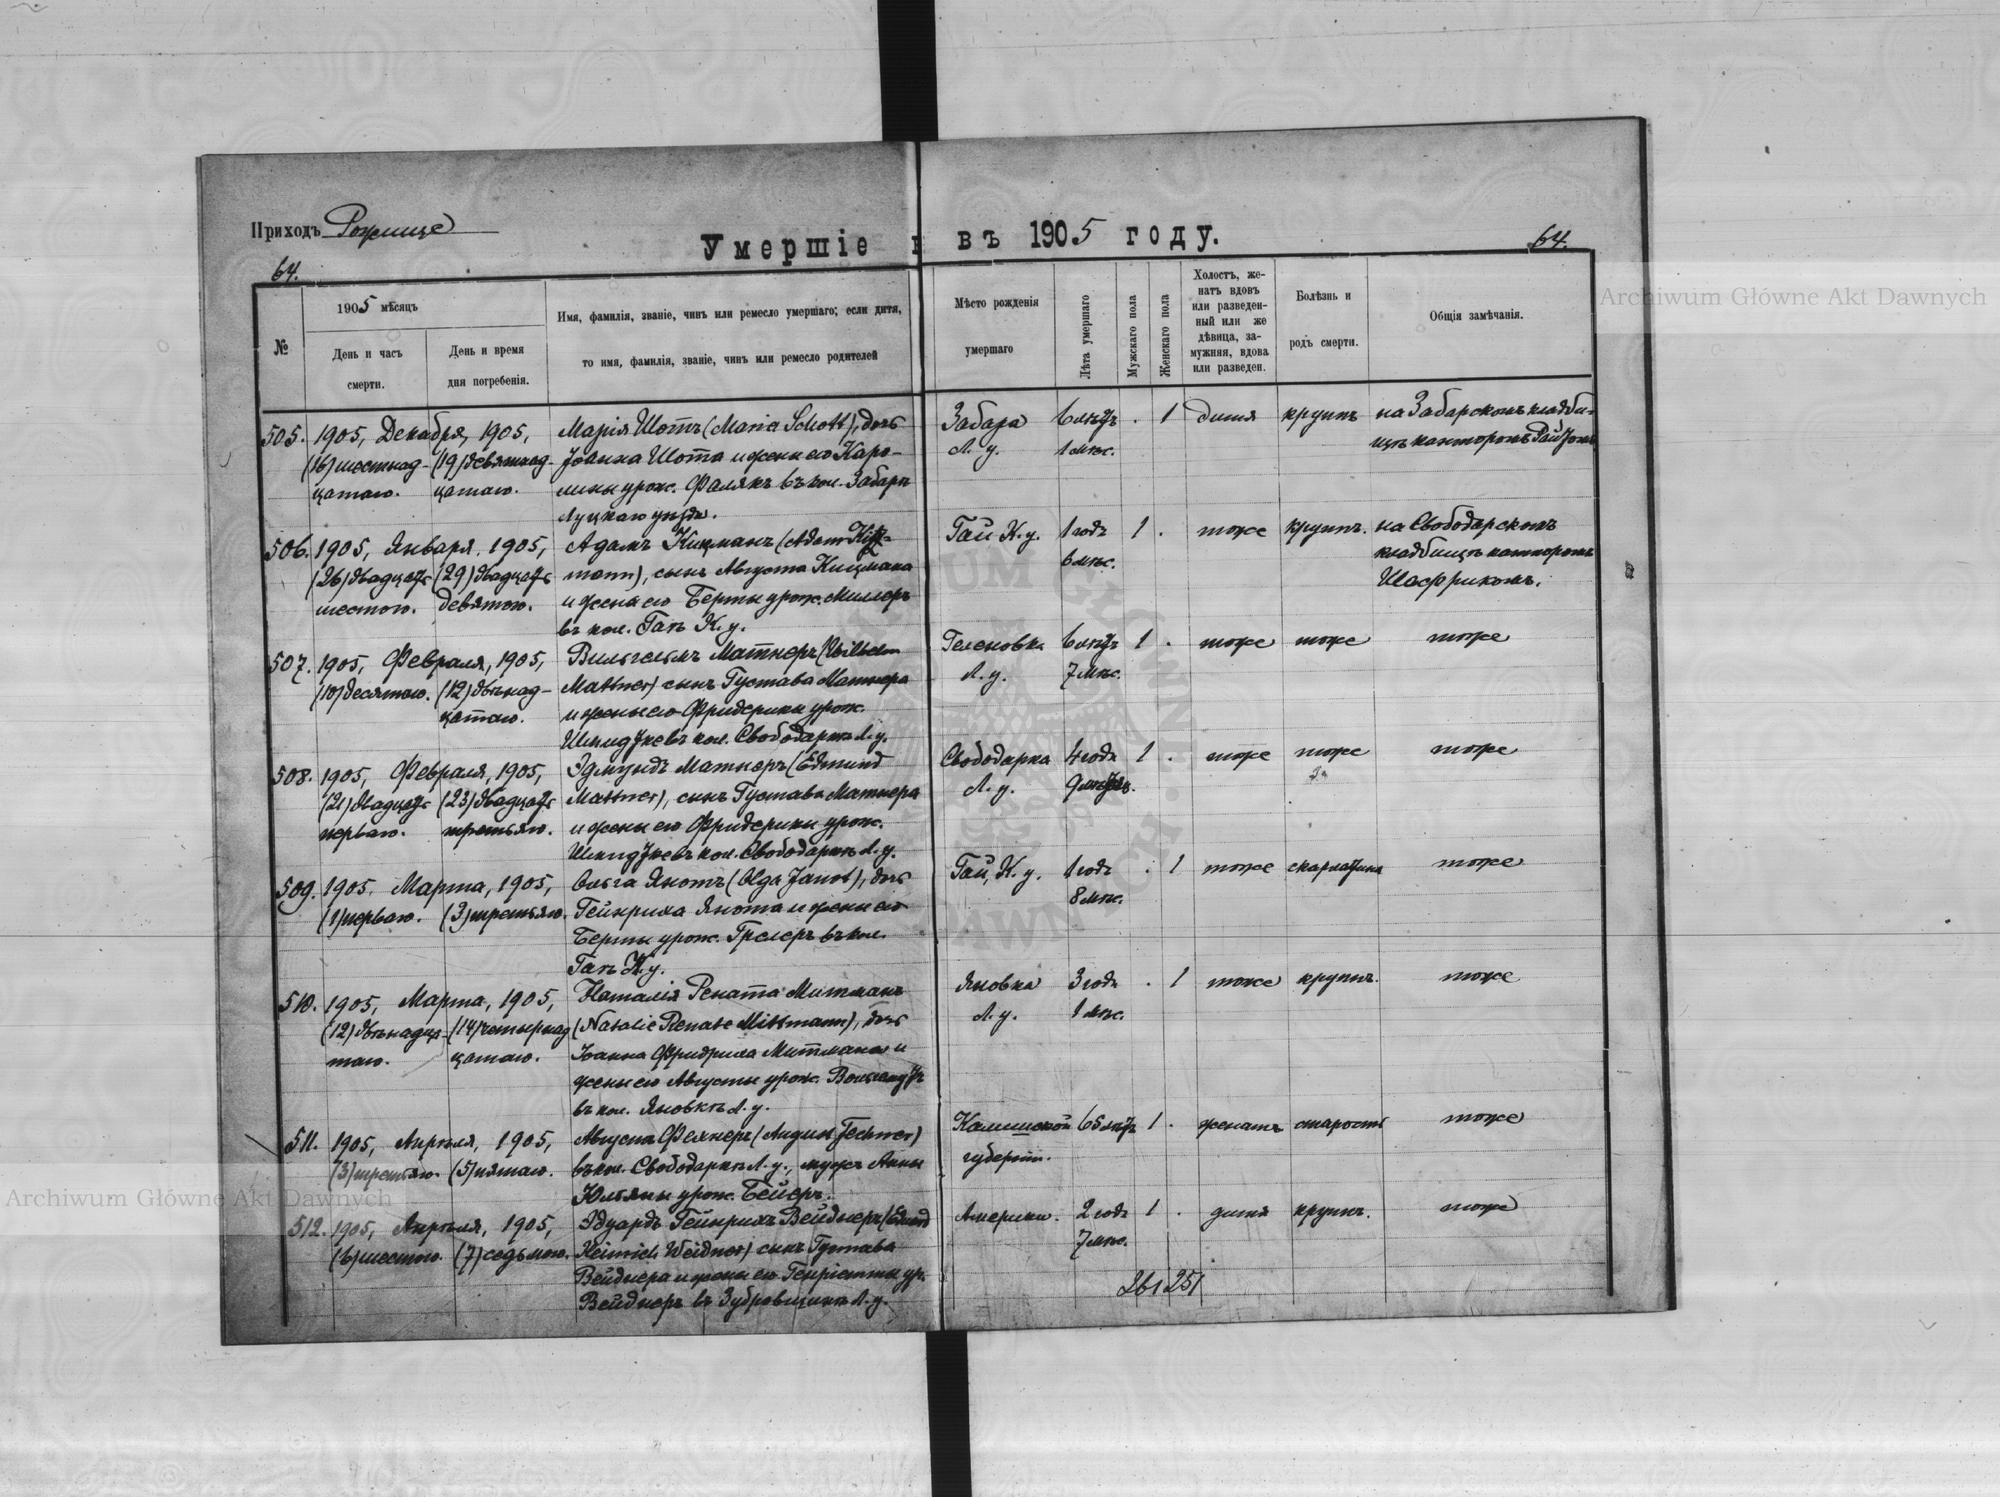 Приходъ Рожище
Умершіе въ 1905 году.
64.
64.
№
1905 мѣсяцъ
День и часъ смерти.
День и время дня погребенія.
Имя, фамилія, званіе, чинъ или ремесло умершаго; если дитя,
то имя, фамилія, званіе, чинъ или ремесло родителей
Мѣсто рожденія
умершаго
Лѣта умершаго
Мужскаго пола
Женскаго пола
Холостъ, же-
натъ вдовъ
или разведен-
ный или же
дѣвица, за-
мужняя, вдова
или разведен.
Болѣзнь и
родъ смерти.
Общія замѣчанія.
505. 1905, Декабря, 1905,
(16) шестнад- (19) девятнад-
цатаго. цатаго.
Марія Шоттъ (Maria Schott), дочь
Іоанна Шотта и жены его Каро-
лины урож. Фалякъ въ кол. Забарѣ
Луцкаго уѣзда.
Забара 6 лѣтъ . 1 дитя крупъ на Забарскомъ кладби-
Л. у. 1 мѣс. щѣ канторомъ
506. 1905, Января, 1905,
(26) двадцать (29) двадцать
шестого. девятого.
Адамъ Кицманъ (Adam Kitz-
mann), сынъ Августа Кицмана
и жены его Берты урож. Миллеръ
въ кол. Гаѣ К. у.
Гай К. у. 1 годъ 1 . тоже крупъ. на Свободарскомъ
6 мѣс. кладбищѣ канторомъ
Шафрикомъ.
507. 1905, Февраля, 1905,
(10) десятаго. (12) двѣнад-
цатаго.
Вильгельмъ Матнеръ (Wilhelm
Mattner) сынъ Густава Матнера
и жены его Фридерики урож.
Шмидтке въ кол. Свободаркѣ Л. у.
Геленовка 6 лѣтъ 1 . тоже тоже тоже
Л. у. 7 мѣс.
508. 1905, Февраля, 1905,
(21) двадцать (23) двадцать
перваго. третьяго.
Эдмундъ Матнеръ (Edmund
Mattner), сынъ Густава Матнера
и жены его Фридерики урож.
Шмидтке въ кол. Свободаркѣ Л. у.
Свободарка 4 года 1 . тоже тоже тоже
Л. у.
509. 1905, Марта, 1905,
(1) перваго. (3) третьяго.
Ольга Янотъ (Olga Janot), дочь
Гейнриха Янота и жены его
Берты урож. Грелеръ въ кол.
Гаѣ К. у.
Гай, К. у. 1 годъ . 1 тоже скарлатина тоже
8 мѣс.
510. 1905, Марта, 1905,
(12) двѣнадца- (14) четырнад
таго. цатаго.
Наталія Рената Митманъ
(Natalie Renate Mittmann), дочь
Іоанна Фридриха Митмана и
жены его Августы урож.
въ кол. Яновкѣ Л. у.
Яновка 3 года . 1 тоже крупъ. тоже
Л. у. 1 мѣс.
511. 1905, Апрѣля, 1905,
(3) третьяго (5) пятаго.
Августъ Фехнеръ (August Fechner)
въ кол. Свободаркѣ Л. у., мужъ Анны
Юльяны урож. Бейеръ.
Калишской 65 лѣтъ 1 . женатъ старость тоже
губерніи.
512. 1905, Апрѣля, 1905,
(6) шестого (7) седьмого.
Эдуардъ Гейнрихъ Вейднеръ (Eduard
Heinrich Weidner) сынъ Густава
Вейднера и жены его Генріетты ур.
Вейднеръ въ Зубровщинѣ Л. у.
Америки. 2 года 1 . дитя крупъ. тоже
7 мѣс.
261 251
Archiwum Główne Akt Dawnych
Archiwum Główne Akt Dawnych